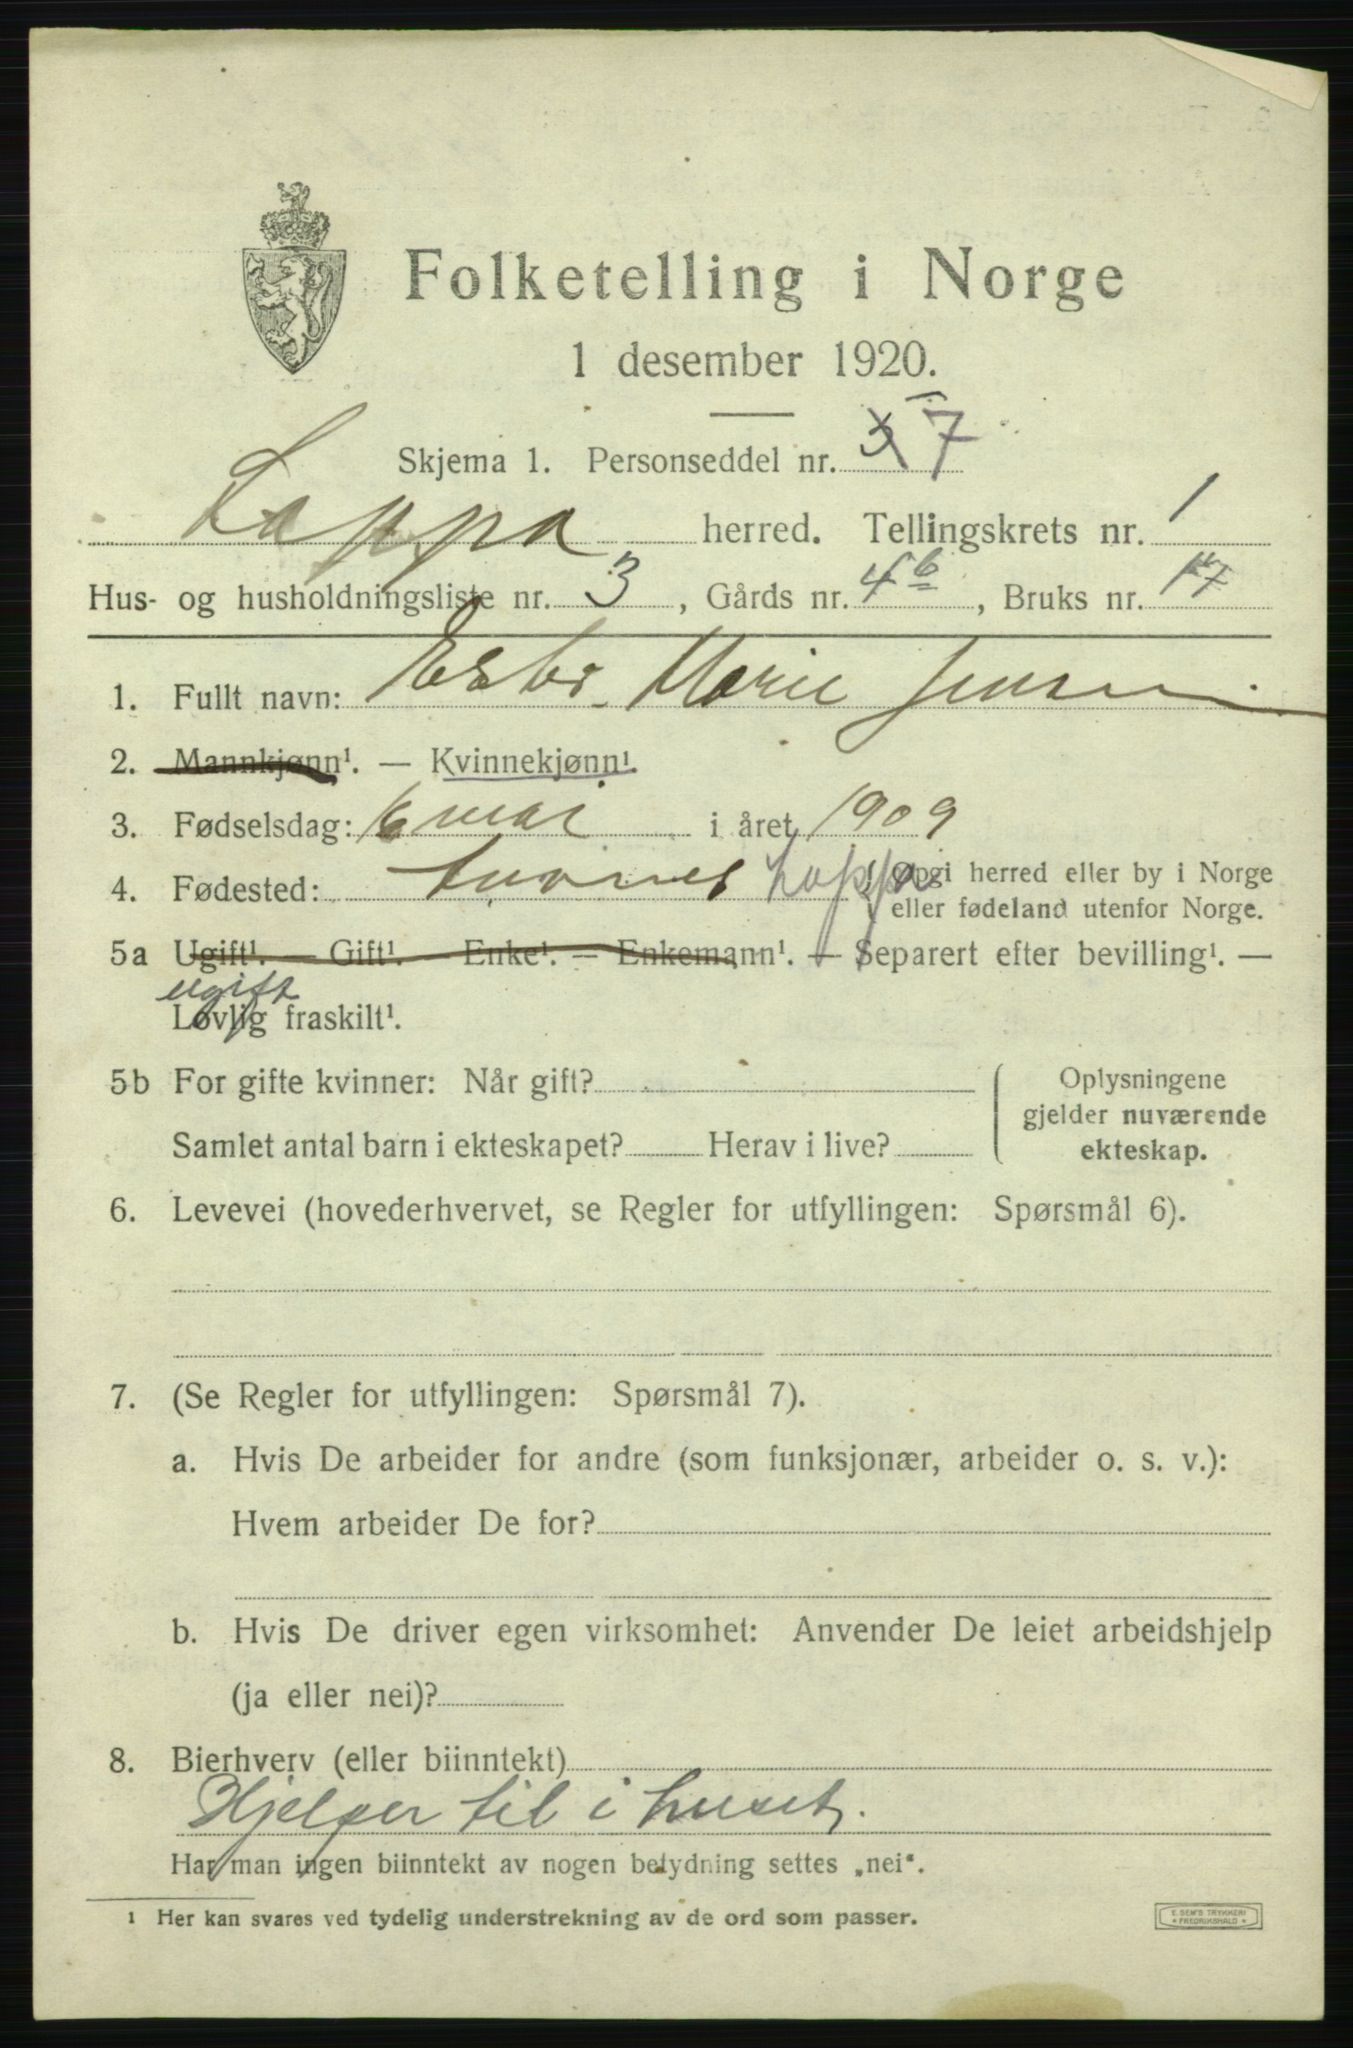 Folketelling i Norge
1 desember 1920.
Skjema 1. Personseddel nr. 3 7
Loppa herred. Tellingskrets nr. 1
Hus- og husholdningsliste nr. 3, Gårds nr. 4 6, Bruks nr. 17
1. Fullt navn: Marie Jensen
2. Mannkjønn¹. — Kvinnekjønn¹.
3. Fødselsdag: 6 mai i året 1909
4. Fødested: Loppa Opgi herred eller by i Norge
eller fødeland utenfor Norge.
5a Ugift¹. — Gift¹. — Enke¹. — Enkemann¹. — Separert efter bevilling¹. —
ugift
Lovlig fraskilt¹.
5b For gifte kvinner: Når gift? Oplysningene
gjelder nuværende
Samlet antal barn i ekteskapet? Herav i live? ekteskap.
6. Levevei (hovederhvervet, se Regler for utfyllingen: Spørsmål 6).
7. (Se Regler for utfyllingen: Spørsmål 7).
a. Hvis De arbeider for andre (som funksjonær, arbeider o. s. v.):
Hvem arbeider De for?
b. Hvis De driver egen virksomhet: Anvender De leiet arbeidshjelp
(ja eller nei)?
8. Bierhverv (eller biinntekt)
Hjelper til i huset.
Har man ingen biinntekt av nogen betydning settes „nei".
¹ Her kan svares ved tydelig understrekning av de ord som passer.
E. SEM'S TRYKKERI
FREDRIKSHALD